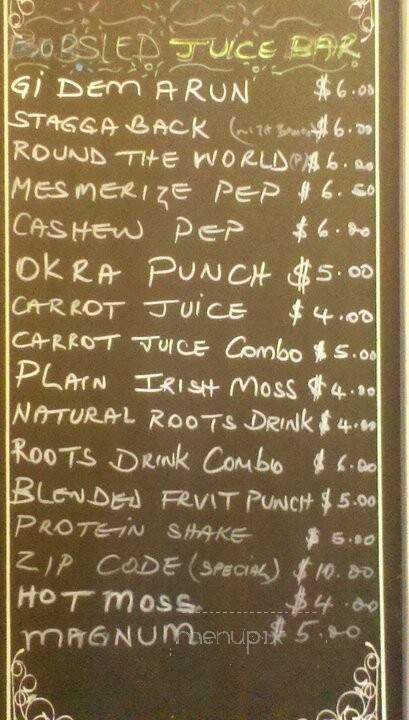 BOBSLED JUICE BAR
Gi DEM A RUN $6.00
STAGGA BACK $6.00
ROUND THE WORLD (P) $6.00
MESMERIZE PEP $6.50
CASHEW PEP $6.00
OKRA PUNCH $5.00
CARROT JUICE $4.00
CARROT JUICE Combo $5.00
PLAIN IRISH MOSS $4.00
NATURAL ROOTS DRINK $4.00
ROOTS DRINK Combo $6.00
BLENDED FRUIT PUNCH $5.00
PROTEIN SHAKE $5.00
ZIP CODE (SPECIAL) $10.00
HOT MOSS $4.00
MAGNUM $5.00
menupix